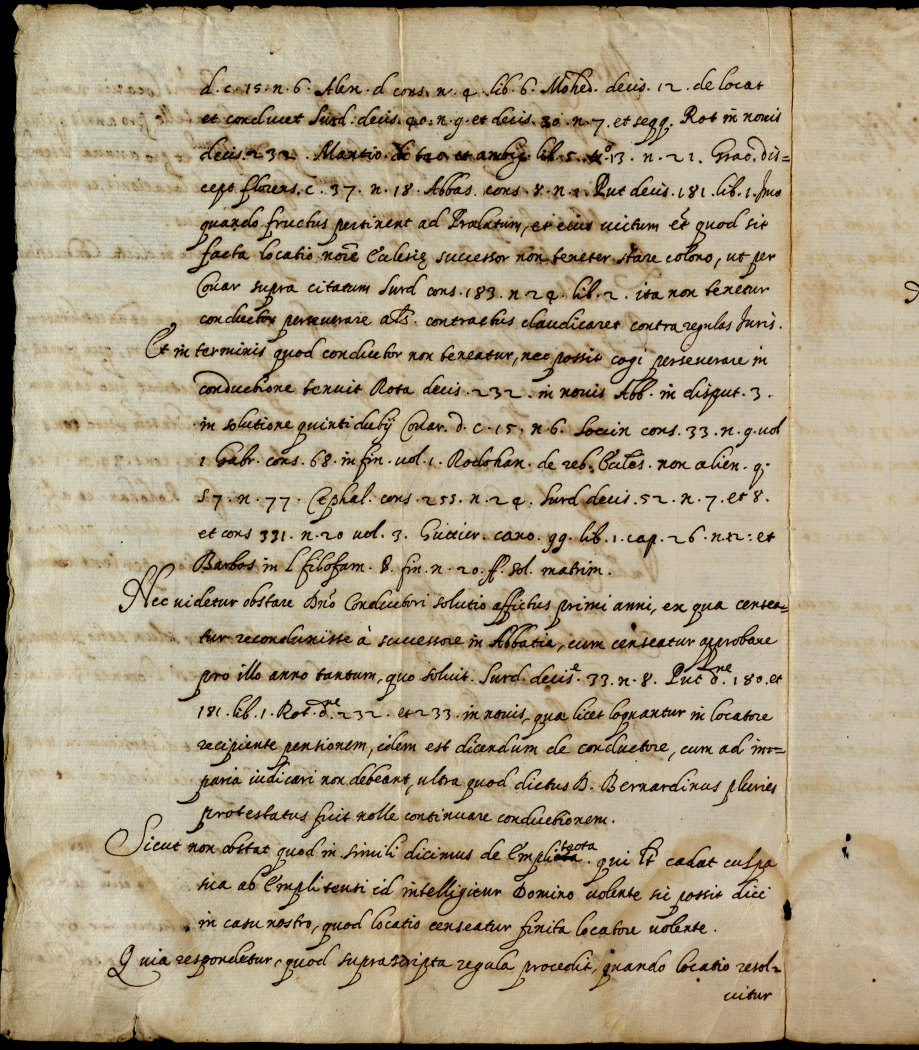 d. c. 15. n. 6. Alex. d cons. n. 4. lib. 6. Mohed. decis. 12. de locat
et conducet Surd. decis. 40. n. 9. et decis. 30. n. 7. et seqq. Rot in novis
decis. 232. Mantic. de et ambig. lib. 5. to 13. n. 21. Grao. dis=
cept florens. c. 37. n. 18. Abbas. cons. 8. n. 1. Put decis. 181. lib. 1. Imo
quando fructus pertinent ad Prælatum, et eius uictum et quod sit
facta locatio noīe Ecclesię successor non tenetur stare colono, ut per
Couar supra citatum Surd cons. 183. n. 24. lib. 2. ita non tenetur
conductor perseuerare als. contractus claudicaret contra regulas Iuris.
Et in terminis quod conductor non teneatur, nec possit cogi perseuerare in
conductione tenuit Rota decis. 232. in nouis Abb. in disput. 3.
in solutione quinti dubij Couar. d. c. 15. n. 6. Socin cons. 33. n. 9. uol
1 Gabr. cons. 68. in fin. uol. 1. Rodohan. de reb. Eccles. non alien. q.
57. n. 77. Cephal. cons. 255. n. 24. Surd decis. 52. n. 7. et 8.
et cons 331. n. 20 uol. 3. Guttier. cano. qq. lib. 1. cap. 26. n. 12: et
Barbos in l. si filiofam. §. fin. n. 20. ff. sol. matrim.
Nec uidetur obstare Dno Conductori solutio affictus primi anni, ex qua censea=
tur reconduxisse à successore in Abbatia, cum censeatur approbare
pro illo anno tantum, quo soluit. Surd. decise. 33. n. 8. Put dne. 180. et
181. lib. 1. Rot. dne 232. et 233. in nouis, qua licet loquantur in locatore
recipiente pensionem, idem est dicendum de conductore, cum ad im=
paria iudicari non debeant, ultra quod dictus D. Bernardinus pluries
protestatus fuit nolle continuare conductionem.
Sicut non obstat quod in simili dicimus de Emplitecta. qui lt cadat culpa
sua ab Emplitensi id intelligitur Domino uolente sic possit dici
in casu nostro, quod locatio censeatur finita locatore uolente.
Quia respondetur, quod suprascripta regula procedit, quando locatio resol=
uitur